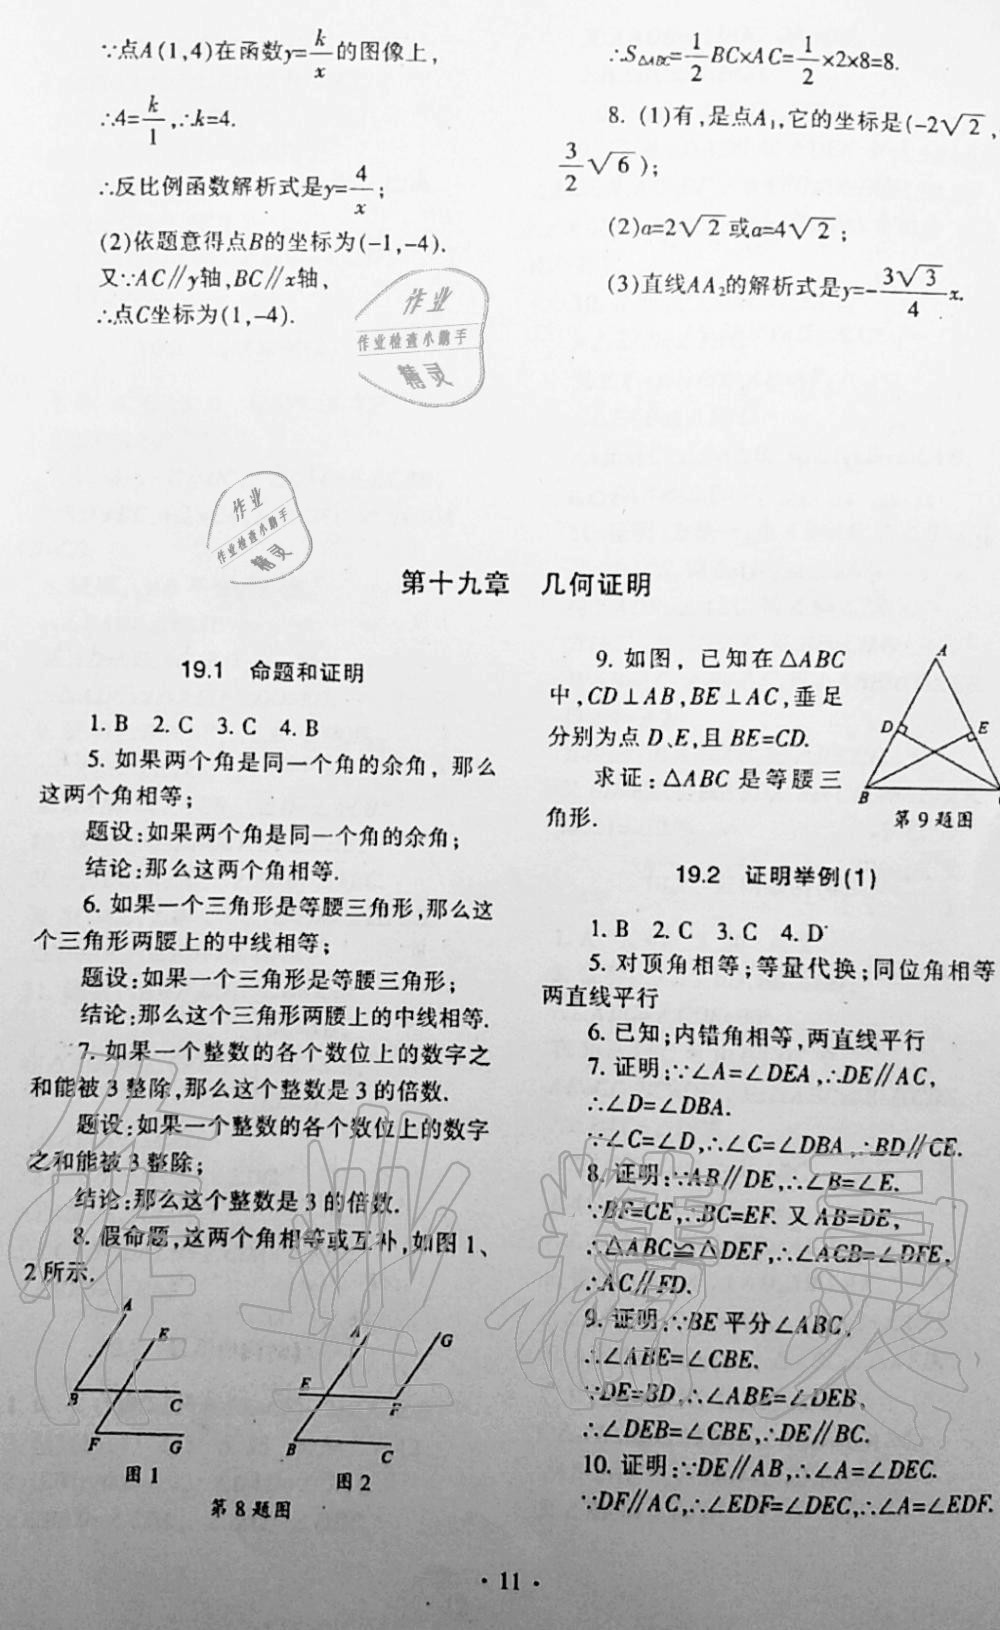 ∵点A(1,4)在函数y=k/x的图像上,
∴4=k/1,∴k=4.
∴反比例函数解析式是y=4/x;
(2)依题意得点B的坐标为(-1,-4).
又∵AC∥y轴,BC∥x轴,
∴点C坐标为(1,-4).
∴S△ABC=1/2BC×AC=1/2×2×8=8.
8. (1)有,是点A₁,它的坐标是(-2√2,
3/2√6);
(2)a=2√2或a=4√2;
(3)直线AA₂的解析式是y=-3√3/4x.
作业
作业检查小助手
精灵
作业
作业检查小助手
精灵
第十九章 几何证明
19.1 命题和证明
1. B 2. C 3. C 4. B
5. 如果两个角是同一个角的余角, 那么
这两个角相等;
题设:如果两个角是同一个角的余角;
结论:那么这两个角相等.
6. 如果一个三角形是等腰三角形,那么这
个三角形两腰上的中线相等;
题设:如果一个三角形是等腰三角形;
结论:那么这个三角形两腰上的中线相等.
7. 如果一个整数的各个数位上的数字之
和能被3整除,那么这个整数是3的倍数.
题设:如果一个整数的各个数位上的数字
之和能被3整除;
结论:那么这个整数是3的倍数.
8. 假命题,这两个角相等或互补,如图1、
2所示.
A
E
B
C
F
G
图1
A
G
E
F
B
C
图2
第8题图
9. 如图, 已知在△ABC
中,CD⊥AB,BE⊥AC,垂足
分别为点D、E,且BE=CD.
求证:△ABC是等腰三
角形.
A
D
E
B
第9题图
19.2 证明举例(1)
1. B 2. C 3. C 4. D
5. 对顶角相等;等量代换;同位角相等
两直线平行
6. 已知;内错角相等,两直线平行
7. 证明:∵∠A=∠DEA,∴DE∥AC,
∴∠D=∠DBA.
∵∠C=∠D,∴∠C=∠DBA,∴BD∥CE.
8. 证明:∵AB∥DE,∴∠B=∠E.
∵BF=CE,∴BC=EF. 又AB=DE,
∴△ABC≌△DEF,∴∠ACB=∠DFE,
∴AC∥FD.
9. 证明:∵BE平分∠ABC,
∴∠ABE=∠CBE.
∵DE=BD,∴∠ABE=∠DEB,
∴∠DEB=∠CBE,∴DE∥BC.
10. 证明:∵DE∥AB,∴∠A=∠DEC.
∵DF∥AC,∴∠EDF=∠DEC,∴∠A=∠EDF.
作业精灵
·11·